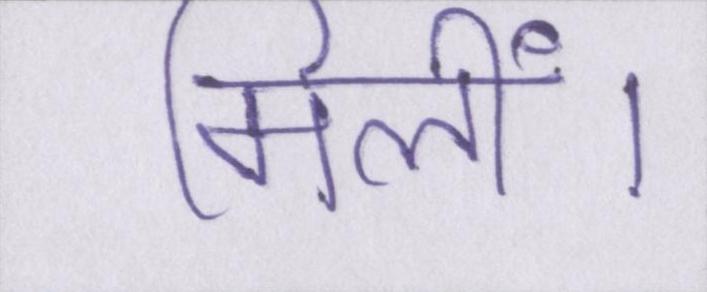 मिलीं।